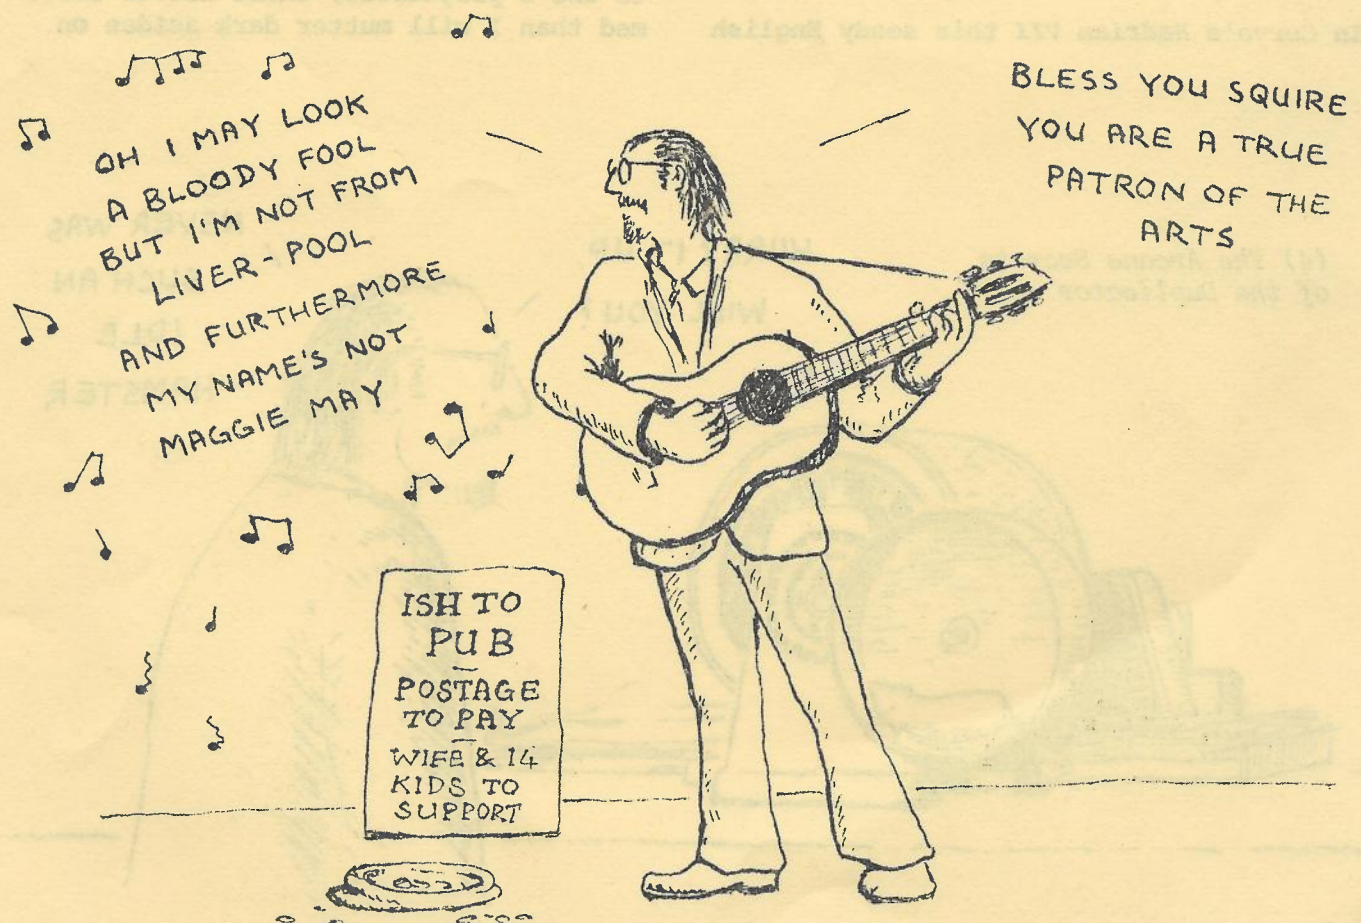 OH I MAY LOOK
A BLOODY FOOL
BUT I'M NOT FROM
LIVER-POOL
AND FURTHERMORE
MY NAME'S NOT
MAGGIE MAY
BLESS YOU SQUIRE
YOU ARE A TRUE
PATRON OF THE
ARTS
ISH TO
PUB
POSTAGE
TO PAY
WIFE & 14
KIDS TO
SUPPORT